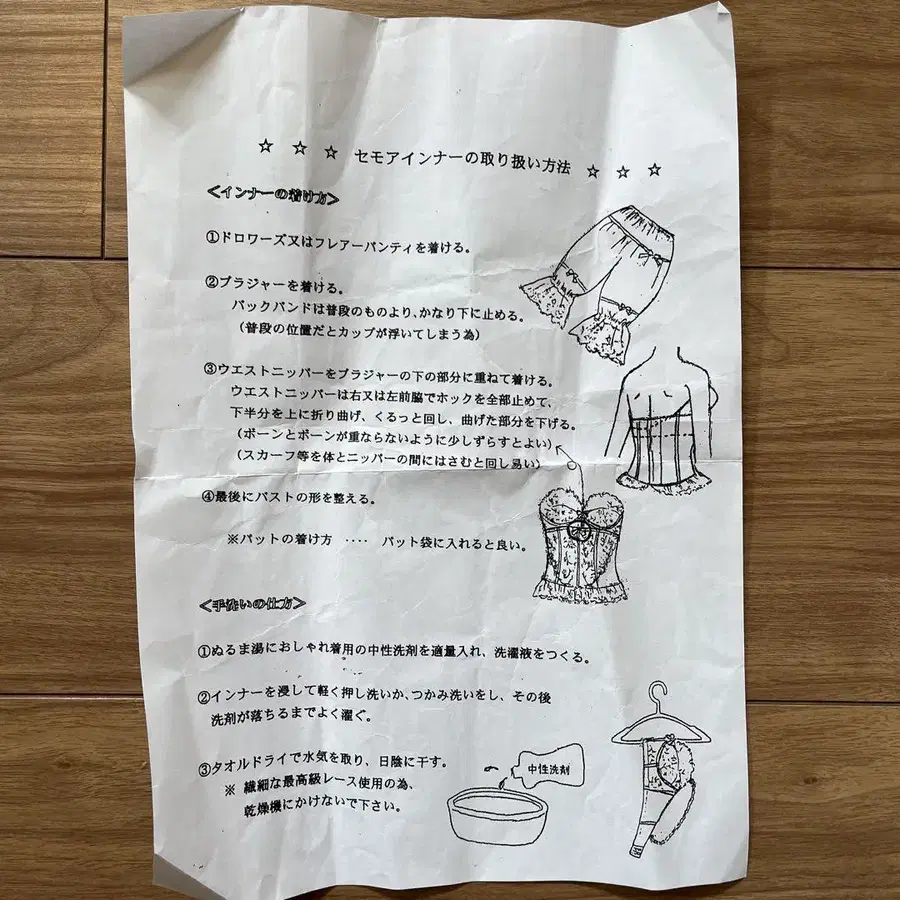 ☆ ☆ ☆ セモアインナーの取り扱い方法 ☆ ☆ ☆
＜インナーの着け方＞
①ドロワーズ又はフレアーパンティを着ける。
②ブラジャーを着ける。
バックバンドは普段のものより、かなり下に止める。
（普段の位置だとカップが浮いてしまう為）
③ウエストニッパーをブラジャーの下の部分に重ねて着ける。
ウエストニッパーは右又は左前脇でホックを全部止めて、
下半分を上に折り曲げ、くるっと回し、曲げた部分を下げる。
（ボーンとボーンが重ならないように少しずらすとよい）
（スカーフ等を体とニッパーの間にはさむと回し易い）
④最後にバストの形を整える。
※パットの着け方 ‥‥ パット袋に入れると良い。
＜手洗いの仕方＞
①ぬるま湯におしゃれ着用の中性洗剤を適量入れ、洗濯液をつくる。
②インナーを浸して軽く押し洗いか、つかみ洗いをし、その後
洗剤が落ちるまでよく濯ぐ。
③タオルドライで水気を取り、日陰に干す。
※ 繊細な最高級レース使用の為、
乾燥機にかけないで下さい。
中性洗剤